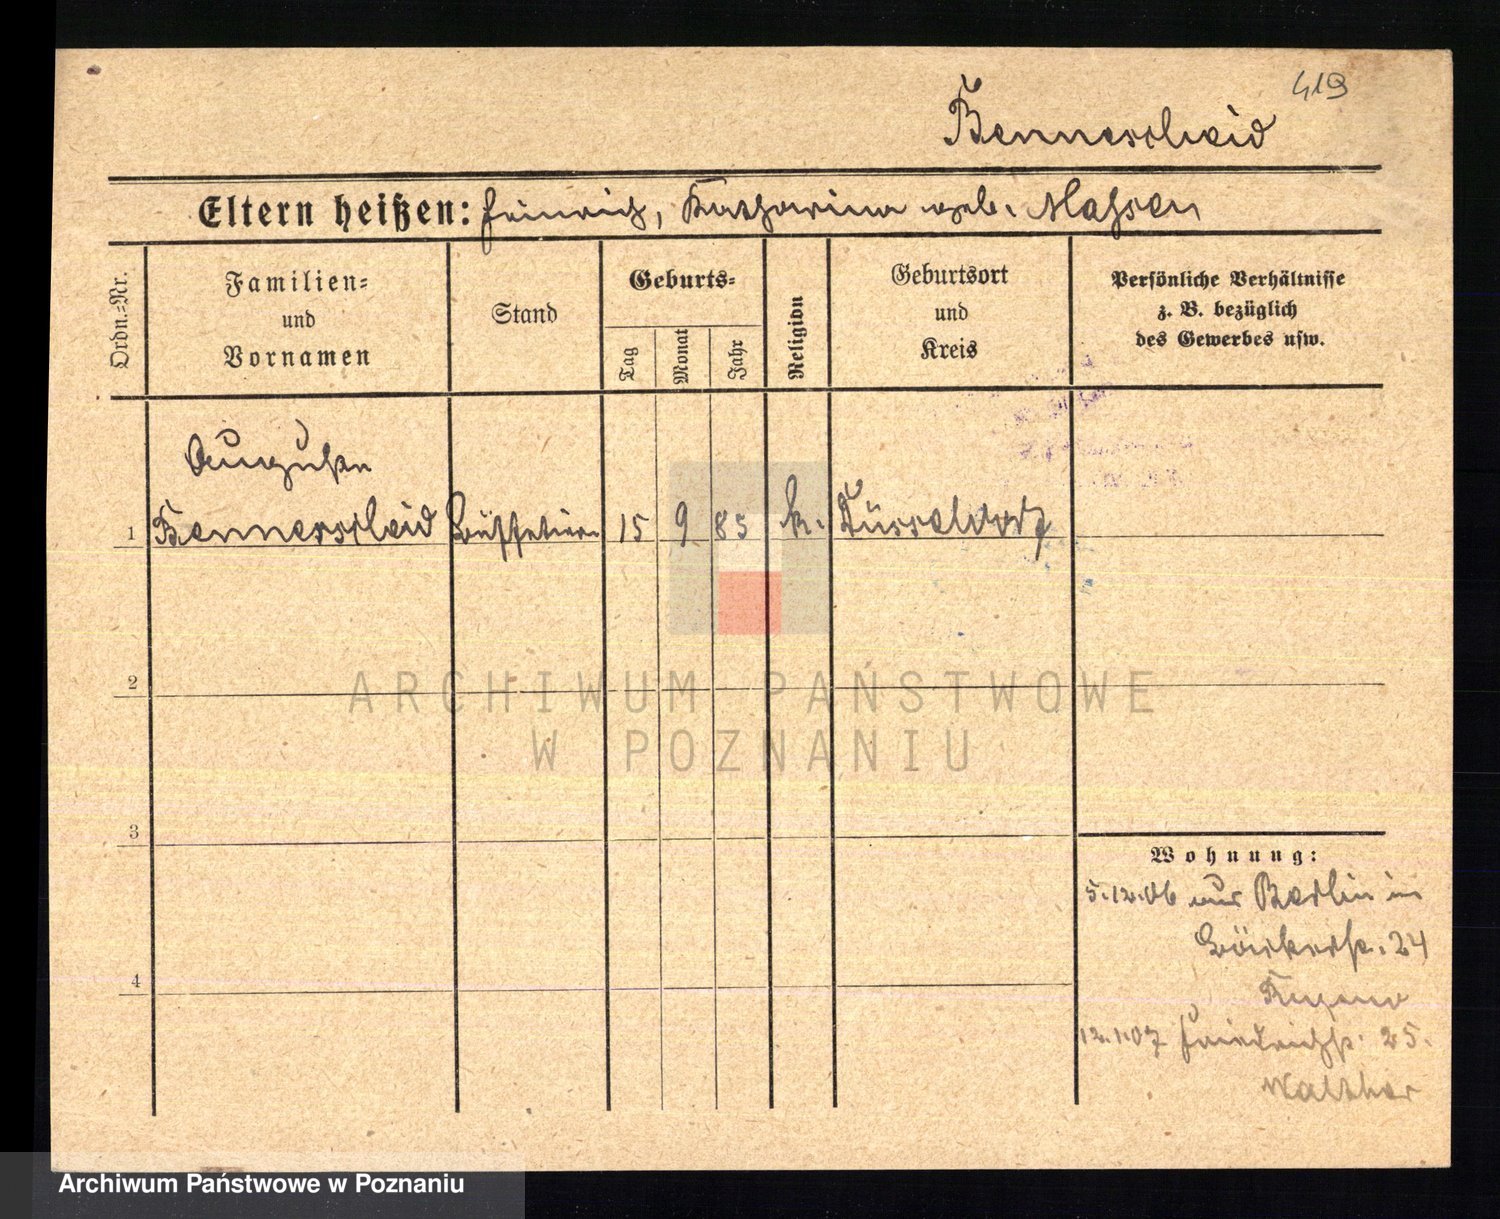 419
Bennerscheid
Eltern heißen: Heinrich, Katharina geb. Massen
Ordn.=Nr.
Familien=
und
Vornamen
Stand
Geburts=
Tag
Monat
Jahr
Religion
Geburtsort
und
Kreis
Persönliche Verhältnisse
z. B. bezüglich
des Gewerbes usw.
Auguste
1 Bennerscheid Büffetiere 15 9 85 k. Düsseldorf
2
ARCHIWUM PAŃSTWOWE
W POZNANIU
3
Wohnung:
5.12.06 aus Berlin in
Bäckerstr. 24
4
12.1.07 Friedrichstr. 25.
Walther
Archiwum Państwowe w Poznaniu